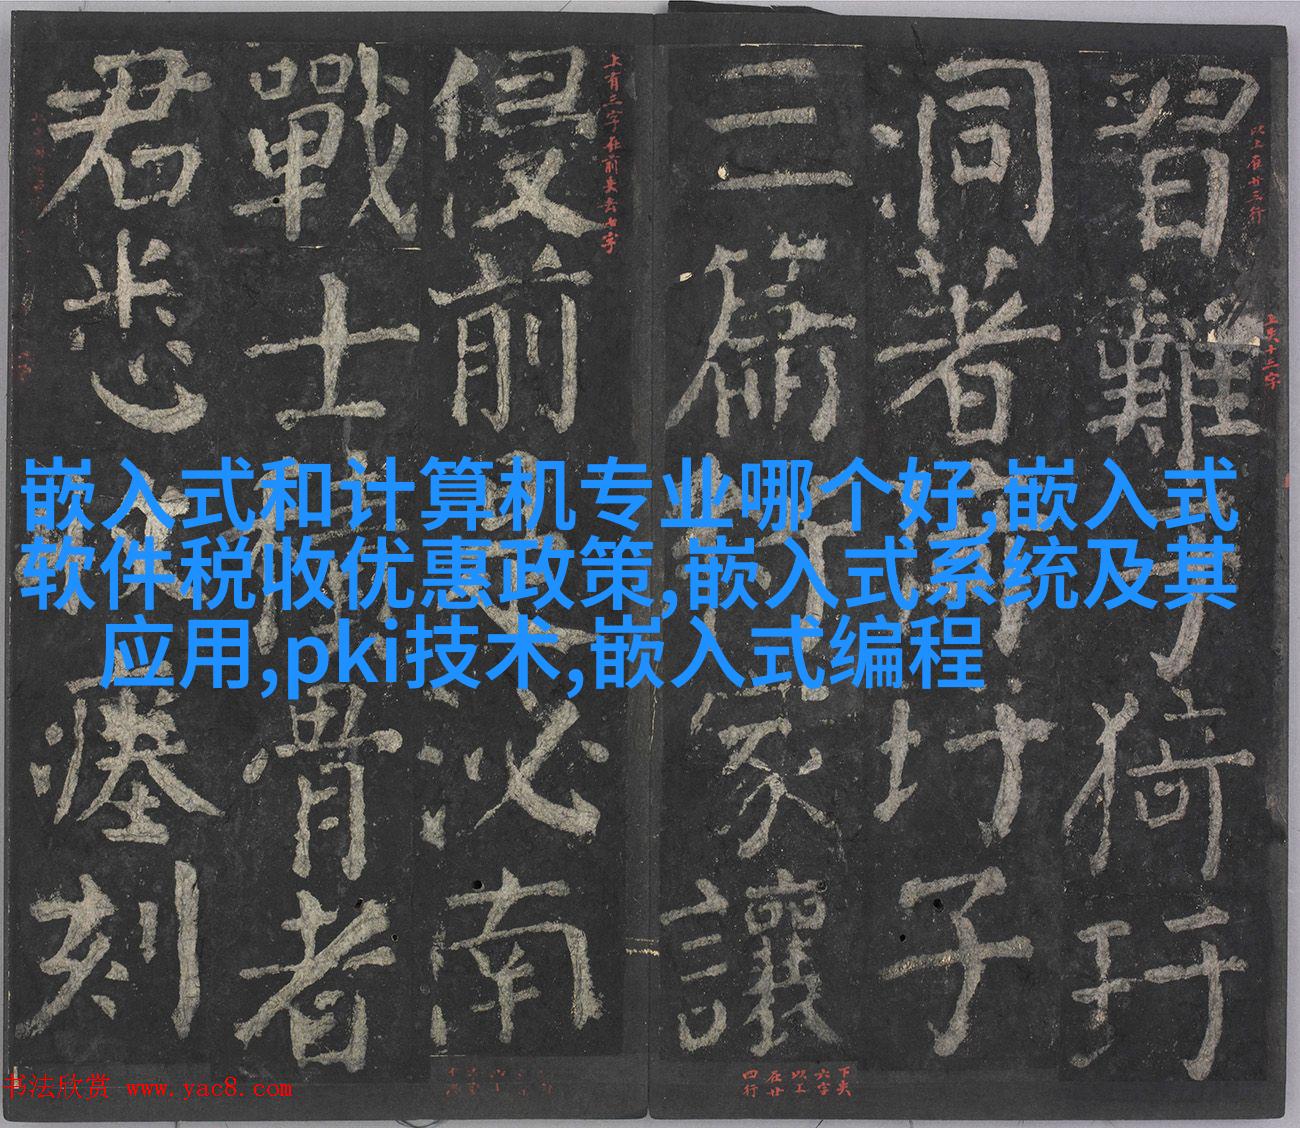 嵌入式和计算机专业哪个好,嵌入式
软件税收优惠政策,嵌入式系统及其
应用,pki技术,嵌入式编程
習難于猗玗
洞著玗子
三篇將家讓
侵前是泌南
戰士積骨者
君悉收瘞刻
以上在廿三行
上失十三字
下失
六字
以上
在廿
四行
上有三字在前失去七字
书法欣赏 www.yac8.com